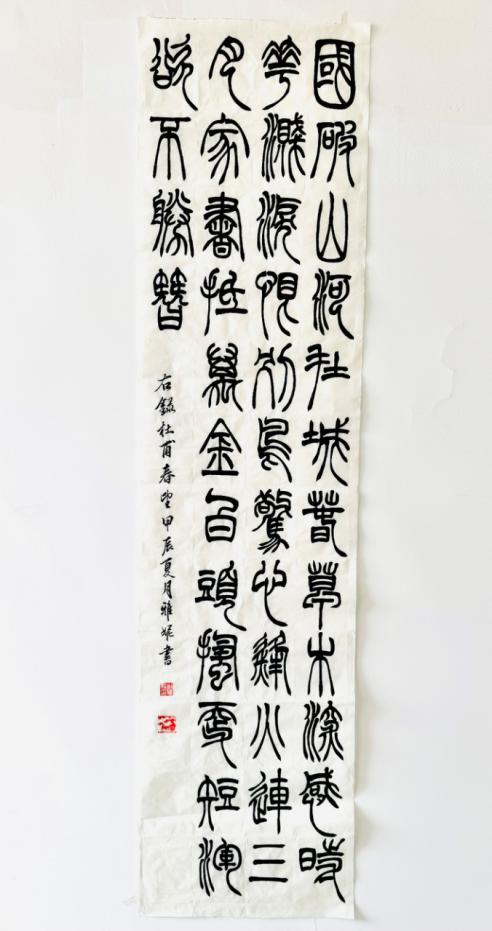 國破山河在城春草木深感時
花濺淚恨別鳥驚心烽火連三
月家書抵萬金白頭搔更短渾
欲不勝簪
右錄杜甫春望甲辰夏月雅妮書